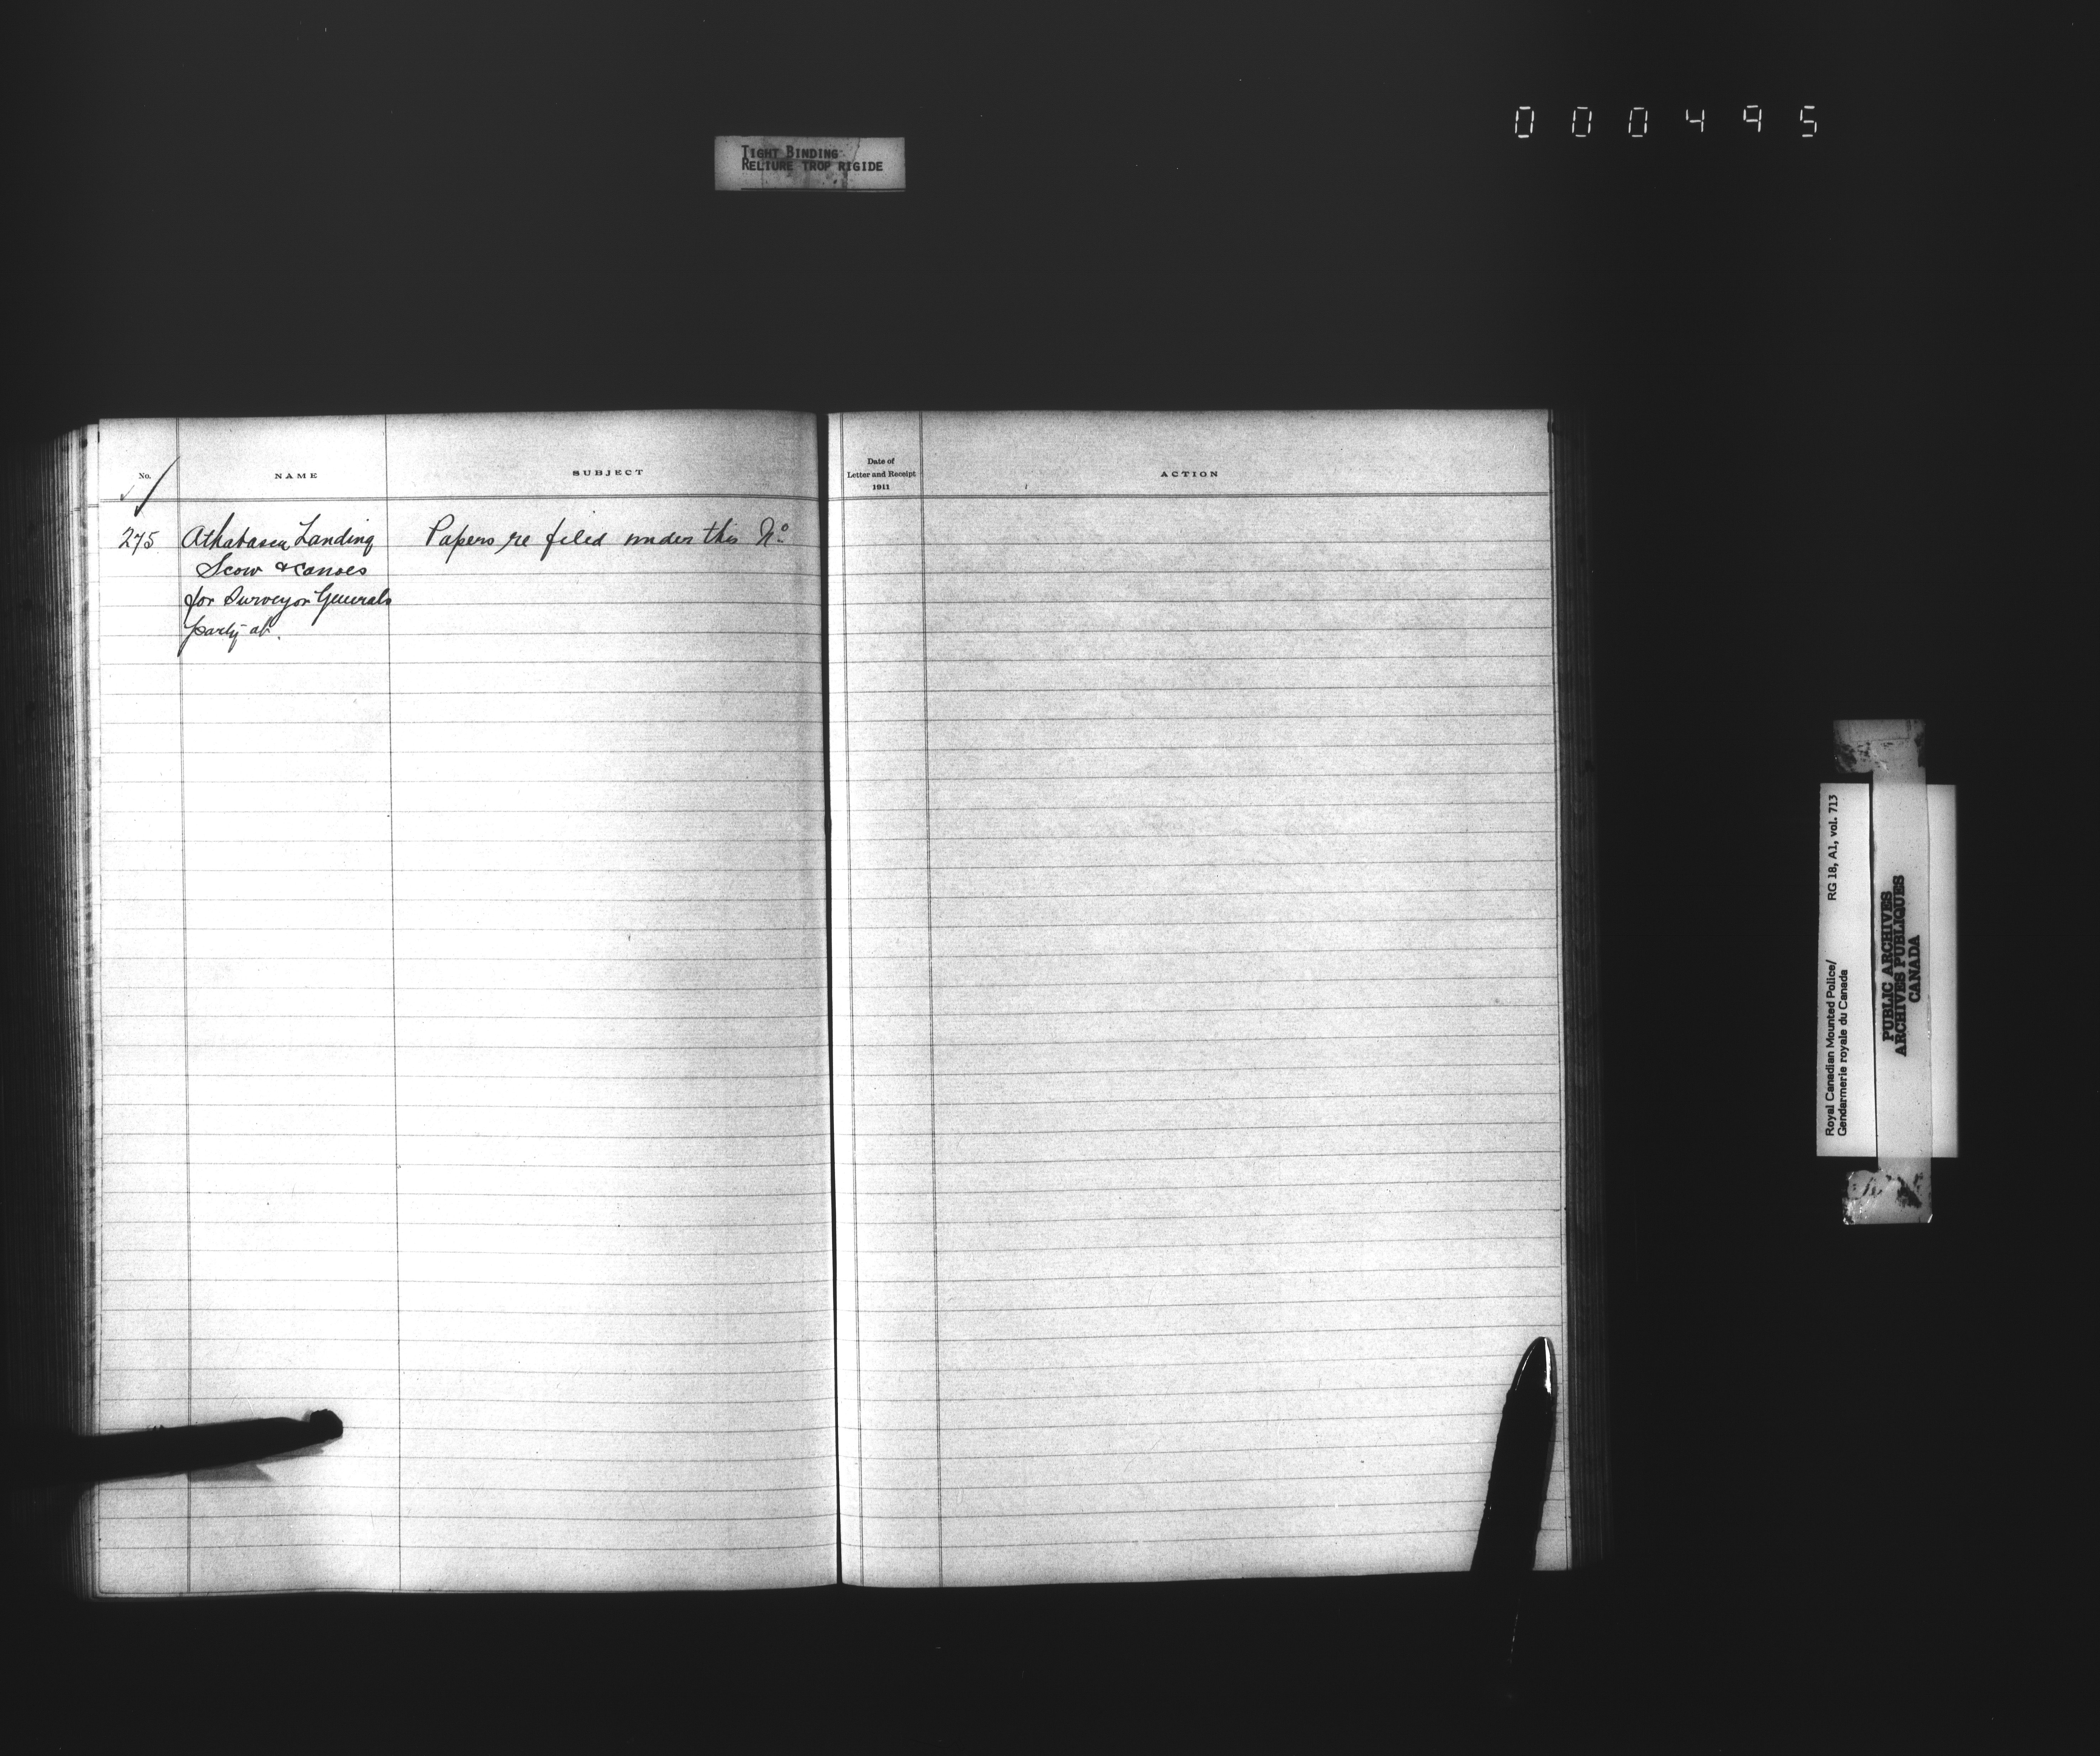 000495
TIGHT BINDING
RELIURE TROP RIGIDE
No.
NAME
SUBJECT
Date of
Letter and Receipt
1911
ACTION
275 Athabasca Landing Papers re filed under this No
Scow & Canoes
for Surveyor Generals
party at.
Royal Canadian Mounted Police/ RG 18, A1, vol. 713
Gendarmerie royale du Canada
PUBLIC ARCHIVES
ARCHIVES PUBLIQUES
CANADA